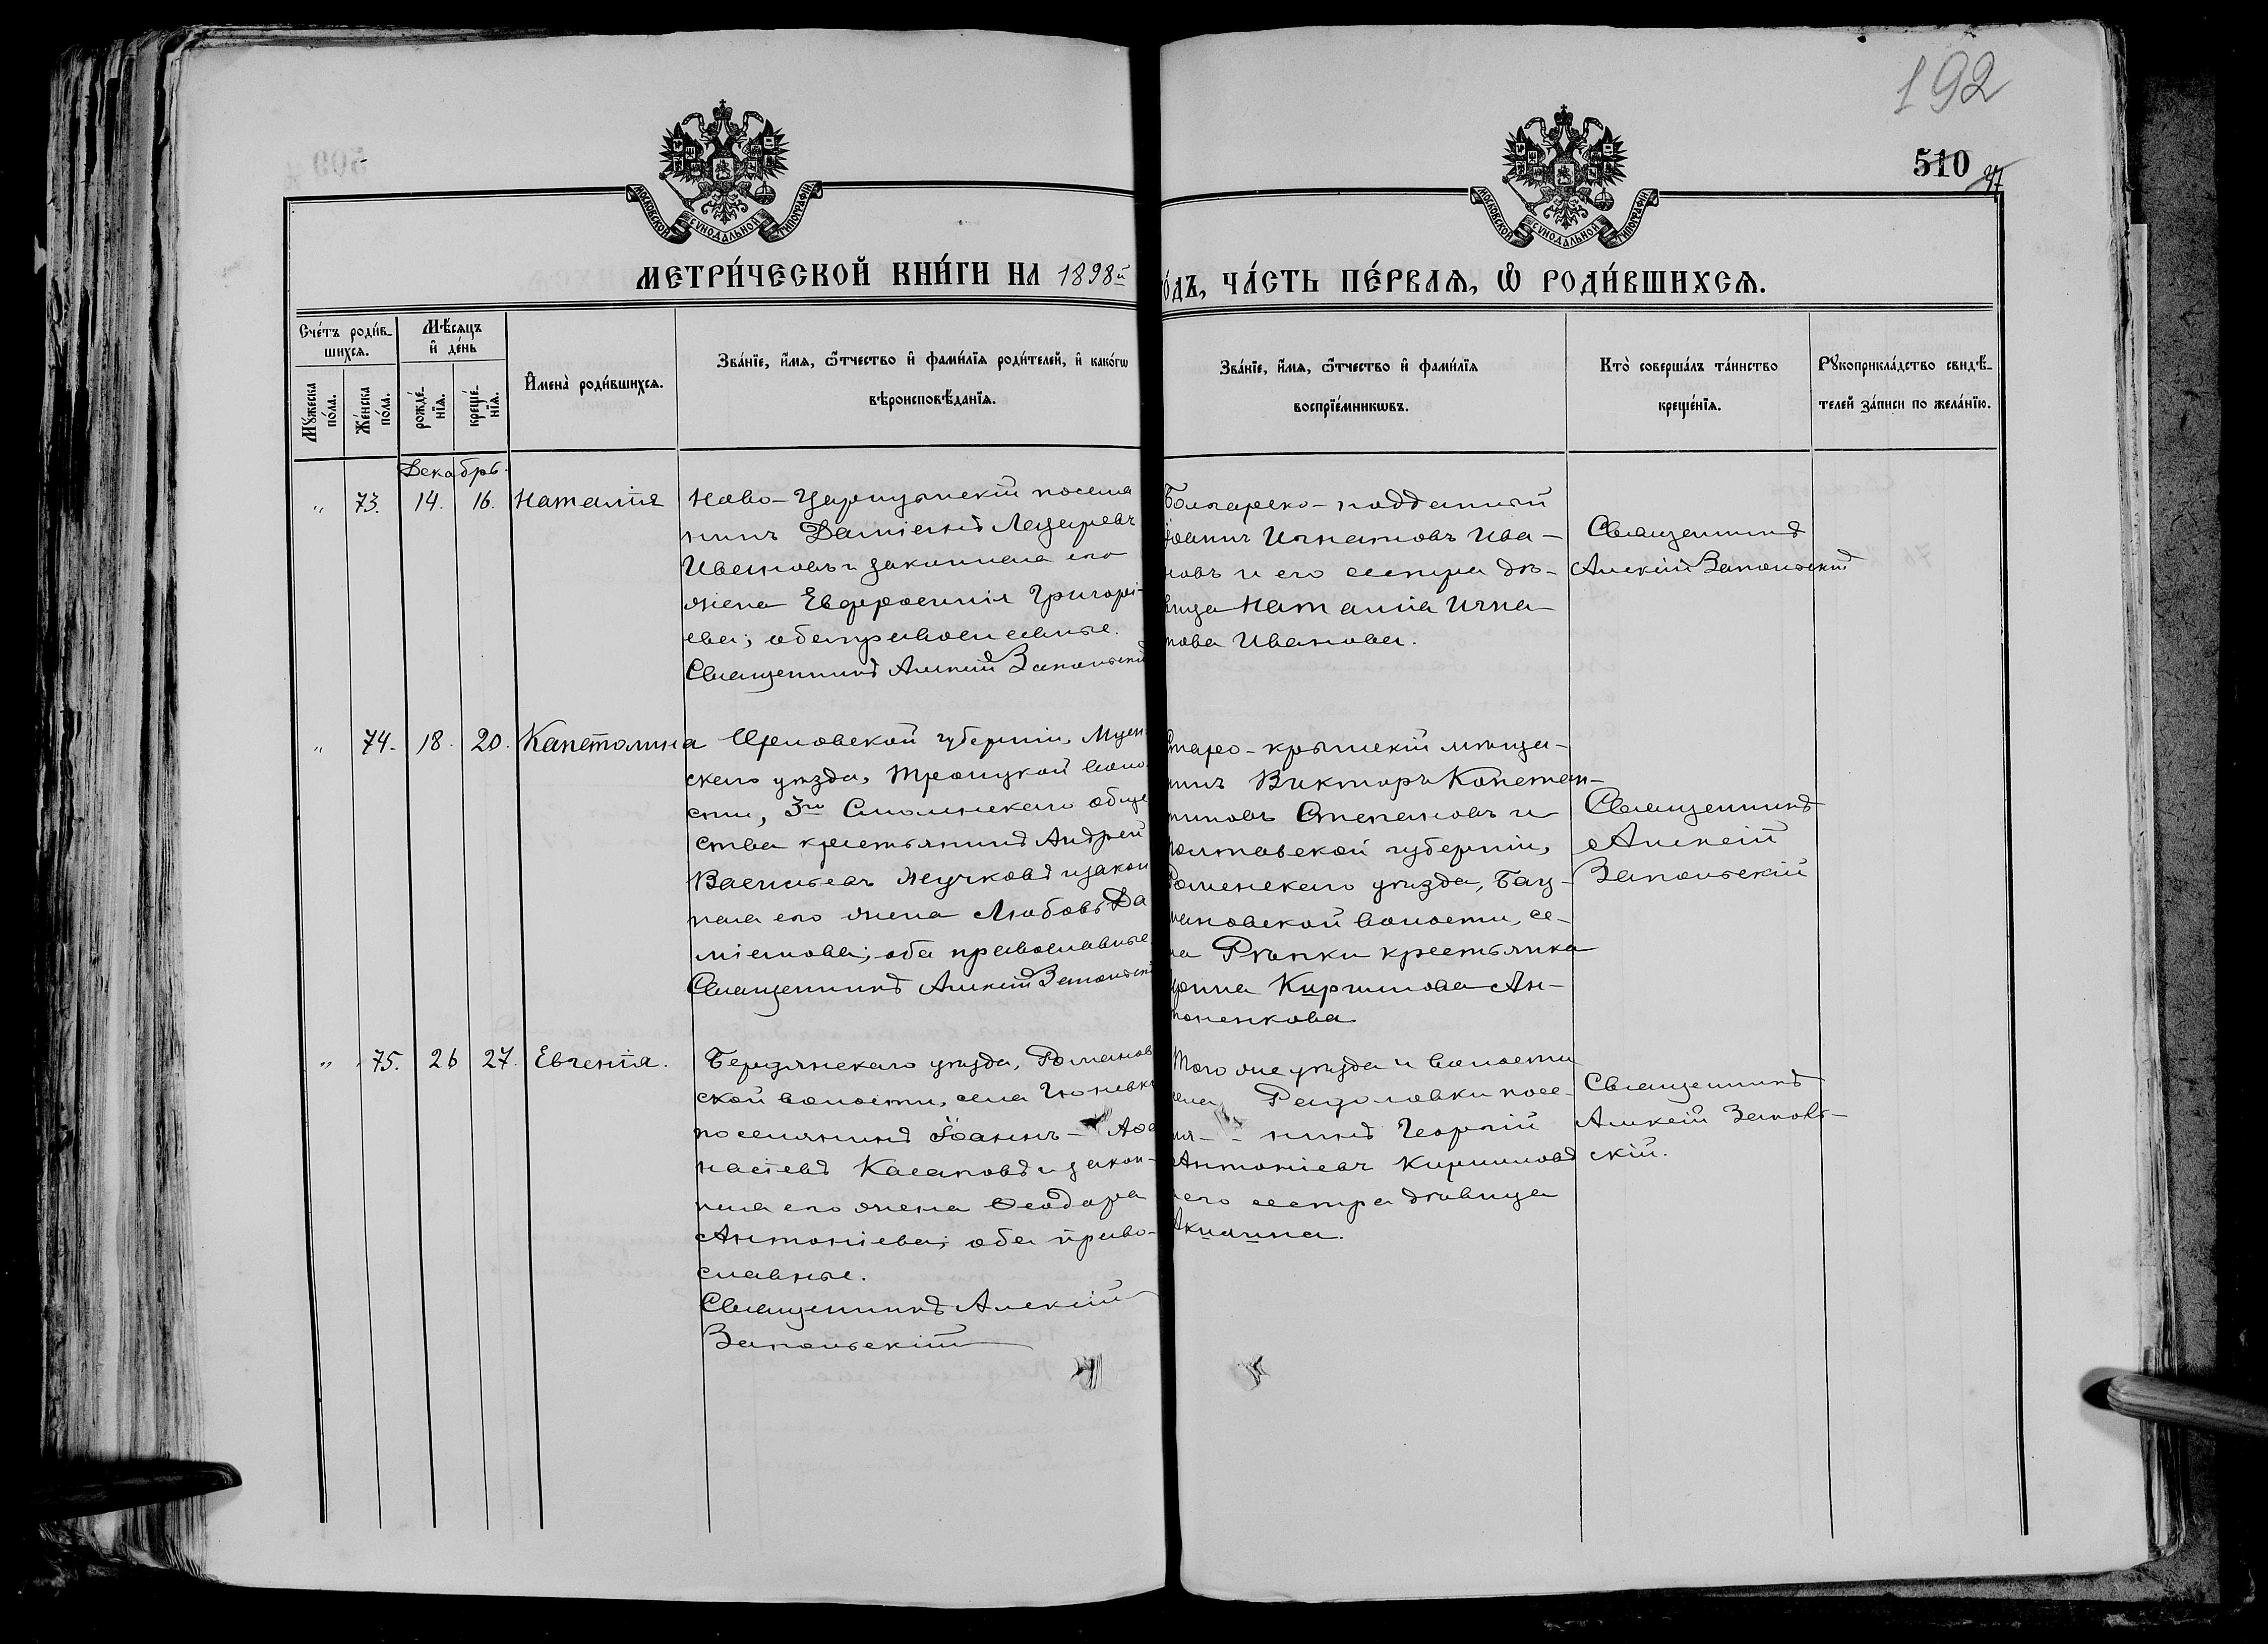 192
510
37
МОСКОВСКОЙ СѴНОДАЛЬНОЙ ТИПОГРАФІИ
МОСКОВСКОЙ СѴНОДАЛЬНОЙ ТИПОГРАФІИ
МЕТРИ́ЧЕСКОЙ КНИ́ГИ НА 1898й
о́дъ, ЧА́СТЬ ПЕ́РВАѦ, Ѡ҆ РОДИ́ВШИХСѦ.
Сче́тъ роди́в-
шихсѧ.
Мꙋжеска по́ла.
Же́нска по́ла.
Мѣ́сѧцъ
и҆ де́нь
рожде́-
нїѧ.
креще́-
нїѧ.
И҆мена̀ роди́вшихсѧ.
Зва́нїе, и҆́мѧ, ѻ҆́тчество и҆ фами́лїѧ роди́телей, и҆ како́гѡ
вѣроисповѣ́данїѧ.
Зва́нїе, и҆́мѧ, ѻ҆́тчество и҆ фами́лїѧ
воспрїе́мникѡвъ.
Кто̀ соверша́лъ та́инство
креще́нїѧ.
Рꙋкоприкла́дство свидѣ́-
телей за́писи по жела́нїю.
Декабрь.
" 73. 14. 16. Наталія
Ново-Царицынскій поселя
нинъ Даміанъ Лазаревъ
Ивановъ и законная его
жена Евфросинія Григорі-
ева; оба православные.
Священникъ Алексій Запольскій
Болгарско-подданный
Іоаннъ Игнатовъ Ива-
новъ и его сестра дѣ-
вица Наталія Игна-
това Иванова.
Священникъ
Алексій Запольскій
" 74. 18. 20. Капетолина
Орловской губерніи, Мцен-
скаго уѣзда, Троицкой воло-
сти, 3го Смолинскаго обще
ства крестьянинъ Андрей
Васильевъ Жучковъ и закон
ная его жена Любовь Да
міанова; оба православные.
Священникъ Алексій Запольскі
Старо-крымскій мѣща-
нинъ Викторъ Констан-
тиновъ Степановъ и
Полтавской губерніи,
Роменскаго уѣзда,
волости, се-
ла Рѣпки крестьянка
Кирилова Ан-
тоненкова
Священникъ
Алексій
Запольскій
" 75. 26 27. Евгенія.
Бердянскаго уѣзда, Романов
ской волости, села Гюневки
поселянинъ Іоаннъ - Аѳа
насіевъ Касаповъ и закон-
ная его жена Ѳеодора
Антоніева; оба право-
славные.
Священникъ Алексій
Запольскій
Того же уѣзда и волости
села Радоловки посе-
ля- - нинъ Георгій
Антоніевъ Кириловъ
и его сестра дѣвица
Акилина.
Священникъ
Алексій Заполь-
скій.